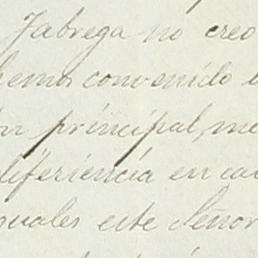 Jabrega no creo
hemos convenido
ón principal, me
diferiencia en ca
quales este Señor